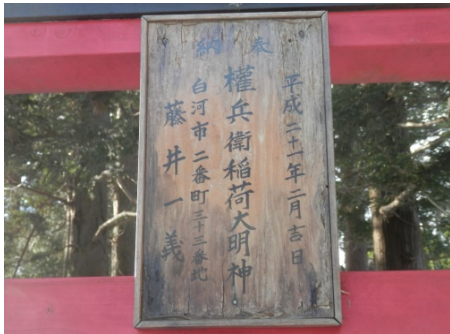 奉納
平成二十一年二月吉日
權兵衛稲荷大明神
白河市二番町三十三番地
藤井一義